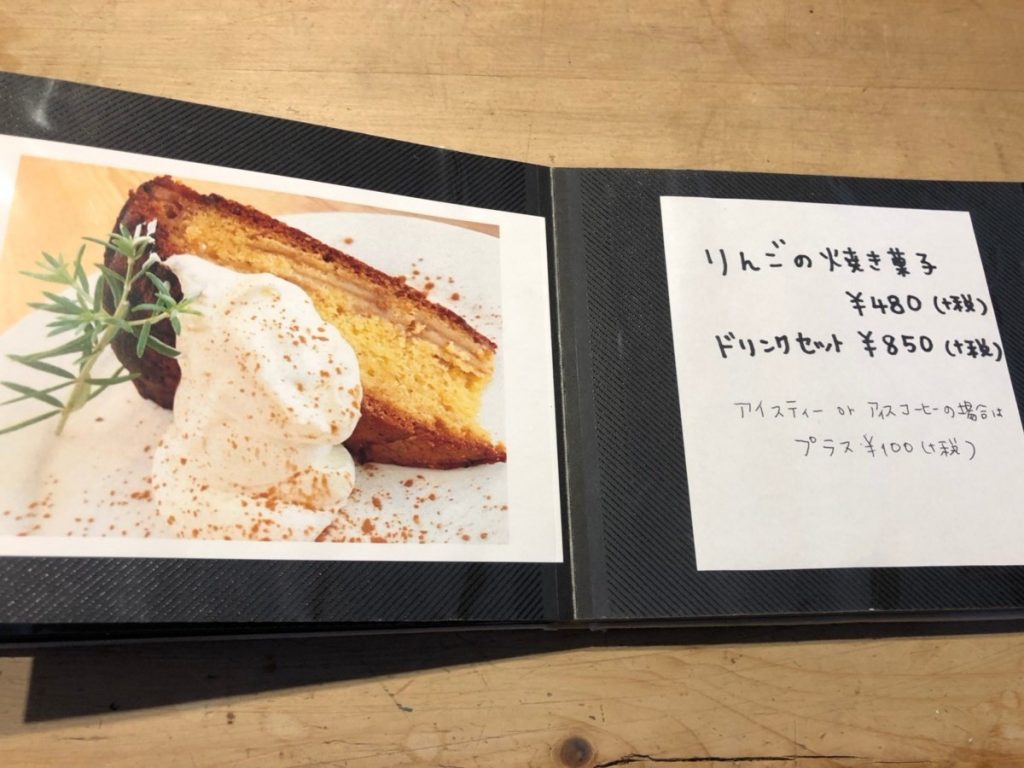 りんごの焼き菓子
¥480(+税)
ドリンクセット ¥850(+税)
アイスティー or アイスコーヒーの場合は
プラス ¥100(+税)